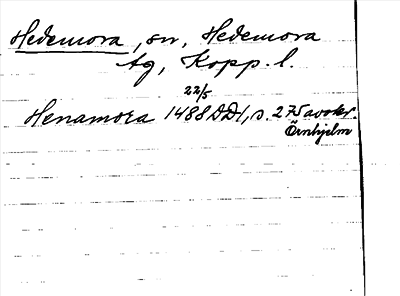 Hedemora, sn, Hedemora
tg, Kopp. l.
22/5
Henamora 1488 DD1, s. 275 avskr.
Örnhjelm